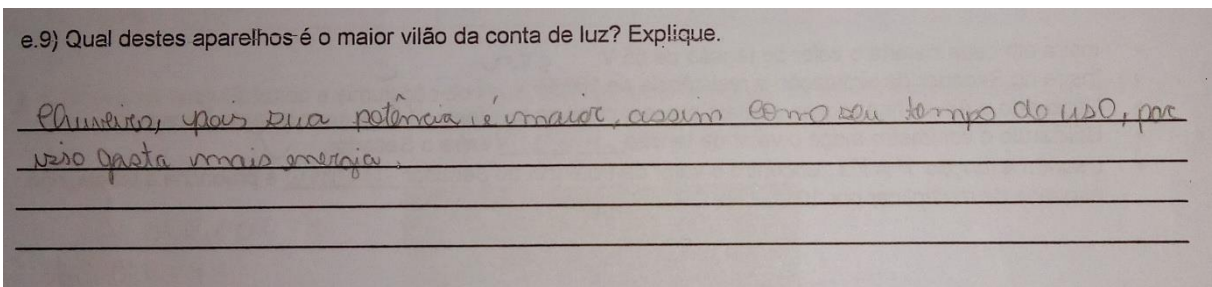 e.9) Qual destes aparelhos é o maior vilão da conta de luz? Explique.
Chuveiro, pois sua potência é maior, assim como seu tempo do uso, por
isso gasta mais energia.